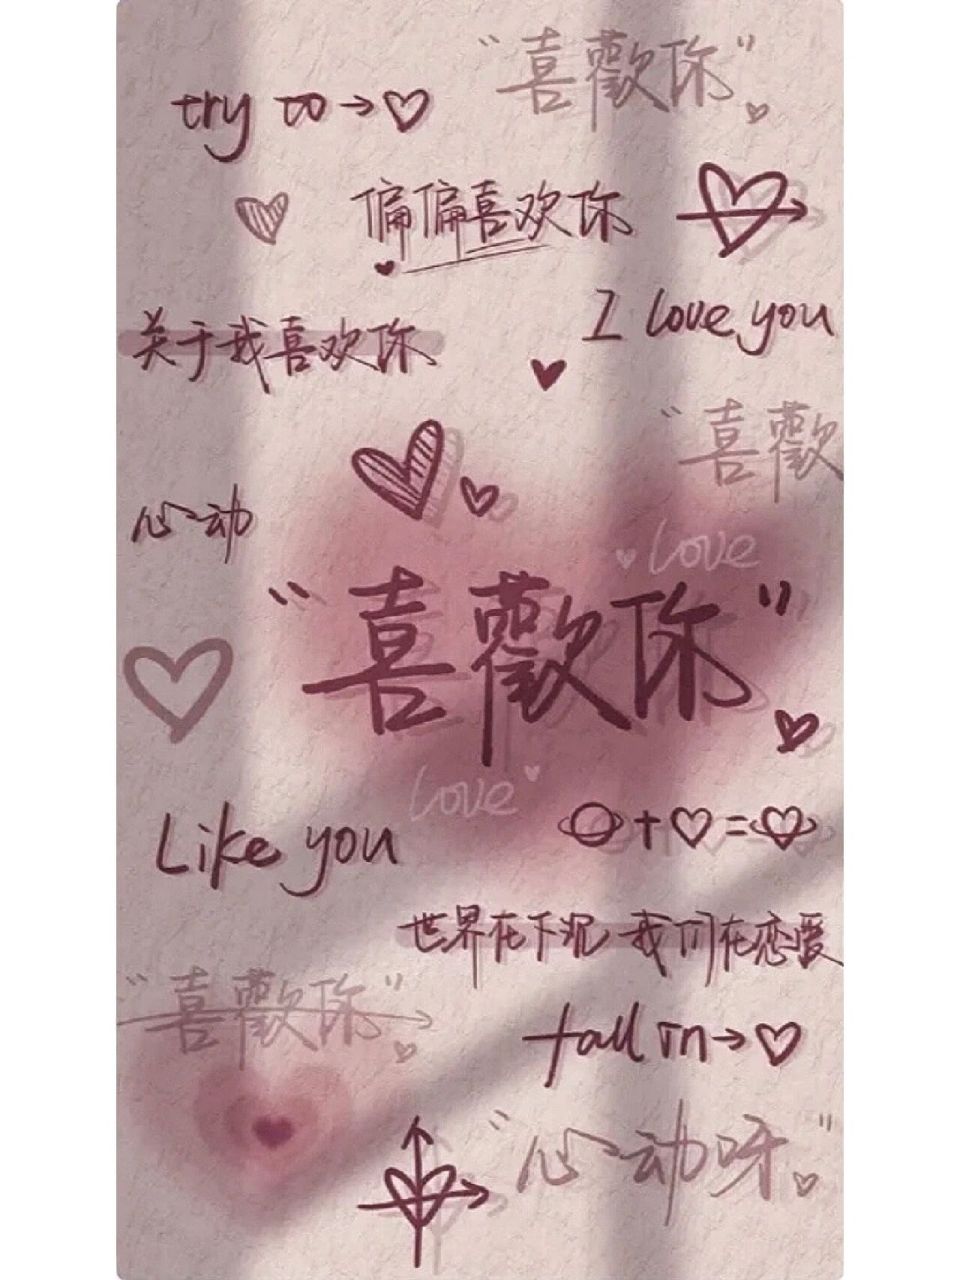 “喜歡你”
try to→♡
偏偏喜欢你
I love you
关于我喜欢你
“喜歡
心动
love
“喜歡你”
love
Like you
+♡=
世界在下沉 我们在恋爱
“喜歡你”
fall in→♡
“心动呀”